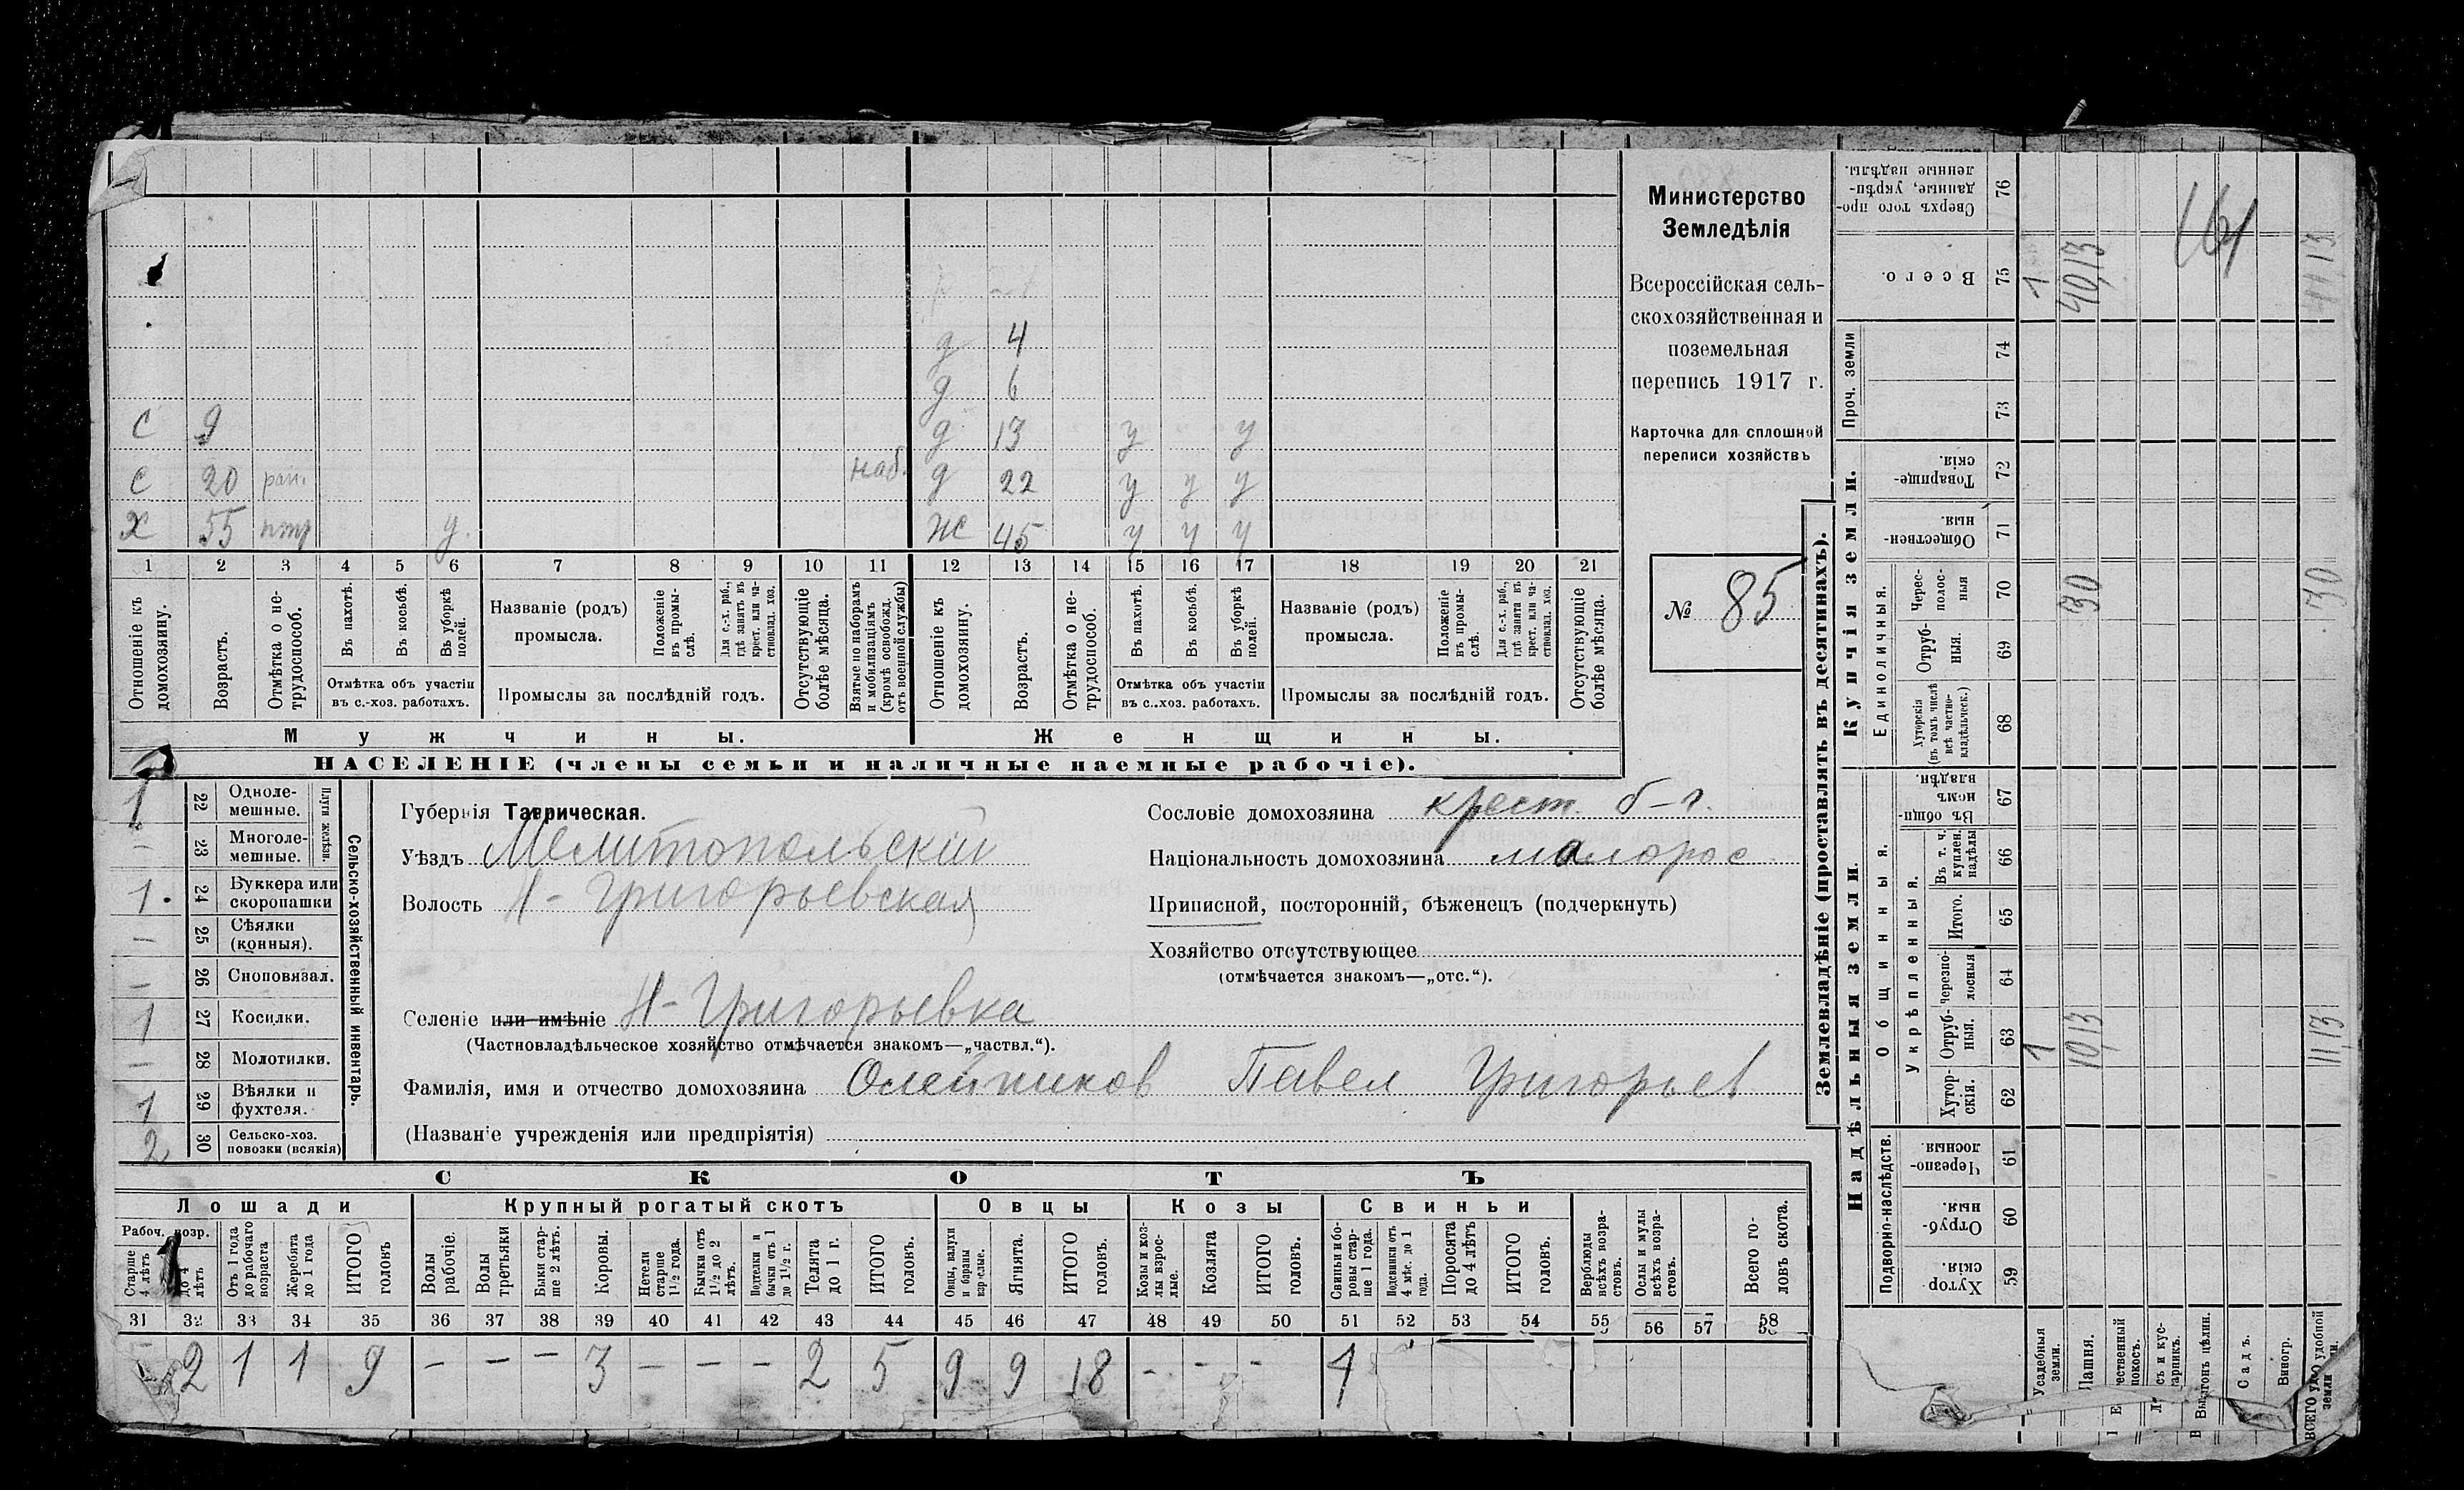 Министерство
Земледѣлія
Всероссійская сель-
скохозяйственная и
поземельная
перепись 1917 г.
Карточка для сплошной
переписи хозяйствъ
№ 85
д 4
д 6
с 9 д 13 у у
с 20 ран. наб. д 22 у у у
х 55 у. ж 45 у у у
1 2 3 4 5 6 7 8 9 10 11 12 13 14 15 16 17 18 19 20 21
Отношеніе къ домохозяину.
Возрастъ.
Отмѣтка о не-трудоспособ.
Въ пахотѣ.
Въ косьбѣ.
Въ уборкѣ полей.
Отмѣтка объ участіи
въ с.-хоз. работахъ.
Названіе (родъ)
промысла.
Положеніе въ промы-слѣ.
Для с.-х. раб., гдѣ занятъ въ крест. или ча-стновлад. хоз.
Промыслы за послѣдній годъ.
Отсутствующіе болѣе мѣсяца.
Взятые по наборамъ и мобилизаціямъ (кромѣ освобожд. отъ военной службы)
Отношеніе къ домохозяину.
Возрастъ.
Отмѣтка о не-трудоспособ.
Въ пахотѣ.
Въ косьбѣ.
Въ уборкѣ полей.
Отмѣтка объ участіи
въ с..хоз. работахъ.
Названіе (родъ)
промысла.
Положеніе въ промы-слѣ.
Для с.-х. раб., гдѣ занята въ крест. или ча-стновлад. хоз.
Промыслы за послѣдній годъ.
Отсутствующіе болѣе мѣсяца.
Мужчины. Женщины.
НАСЕЛЕНІЕ (члены семьи и наличные наемные рабочіе).
Сельско-хозяйственный инвентарь.
Плуги желѣзн.
1 22 Одноле-мешные.
– 23 Многоле-мешные.
1. 24 Буккера или скоропашки
– 25 Сѣялки (конныя).
– 26 Сноповязал.
1 27 Косилки.
– 28 Молотилки.
1 29 Вѣялки и фухтеля.
2 30 Сельско-хоз. повозки (всякія)
Губернія Таврическая.
Уѣздъ Мелитопольскій
Волость Н-Григорьевская
Селеніе или имѣніе Н-Григорьевка
(Частновладѣльческое хозяйство отмѣчается знакомъ—„частвл.“).
Фамилія, имя и отчество домохозяина Олейников Павел Григорьев
(Названіе учрежденія или предпріятія)
Сословіе домохозяина крест. б-г.
Національность домохозяина малорос
Приписной, посторонній, бѣженецъ (подчеркнуть)
Хозяйство отсутствующее
(отмѣчается знакомъ—„отс.“).
СКОТЪ
Лошади Крупный рогатый скотъ Овцы Козы Свиньи
Рабоч. возр.
Старше 4 лѣтъ
до 4 лѣтъ
Отъ 1 года до рабочаго возраста
Жеребята до 1 года
ИТОГО головъ
Волы рабочіе.
Волы третьяки
Быки стар-ше 2 лѣтъ.
Коровы.
Нетели старше 1½ года.
Бычки отъ 1½ до 2 лѣтъ.
Подтелки и бычки отъ 1 до 1½ г.
Телята до 1 г.
ИТОГО головъ.
Овцы, валухи и бараны взрослые.
Ягнята.
ИТОГО головъ.
Козы и коз-лы взрос-лые.
Козлята
ИТОГО головъ.
Свиньи и бо-ровы стар-ше 1 года.
Подсвинки отъ 4 мѣс. до 1 года.
Поросята до 4 лѣтъ
ИТОГО головъ.
Верблюды всѣхъ возра-стовъ.
Ослы и мулы всѣхъ возра-стовъ.
Всего го-ловъ скота.
31 32 33 34 35 36 37 38 39 40 41 42 43 44 45 46 47 48 49 50 51 52 53 54 55 56 57 58
2 1 1 9 – – – 3 – – – 2 5 9 9 18 - - - 1
Землевладѣніе (проставлять въ десятинахъ).
Надѣльныя земли. Купчія земли. Проч. земли
Подворно-наслѣдств. Общинныя. Укрѣпленныя. Единоличныя.
Хутор-скія. 59
Отруб-ныя. 60
Черезпо-лосныя 61
Хутор-скія. 62
Отруб-ныя. 63 1 10,13 11,13
Черезпо-лосныя 64
Итого. 65
Въ т. ч. куплен. надѣлы 66
Въ общи-номъ владѣн. 67
Хуторскія (въ томъ числѣ всѣ частно-владѣльческ.) 68
Отруб-ныя. 69
Черес-полос-ныя 70 30 30
Обществен-ныя. 71
Товарище-скія. 72
73
74
Всего. 75 1 40,13 41,13
Сверхъ того про-данные, укрѣп-ленные надѣлы. 76
161
Усадебныя земли.
Пашня.
Садъ.
Виногр.
ВСЕГО удобной земли